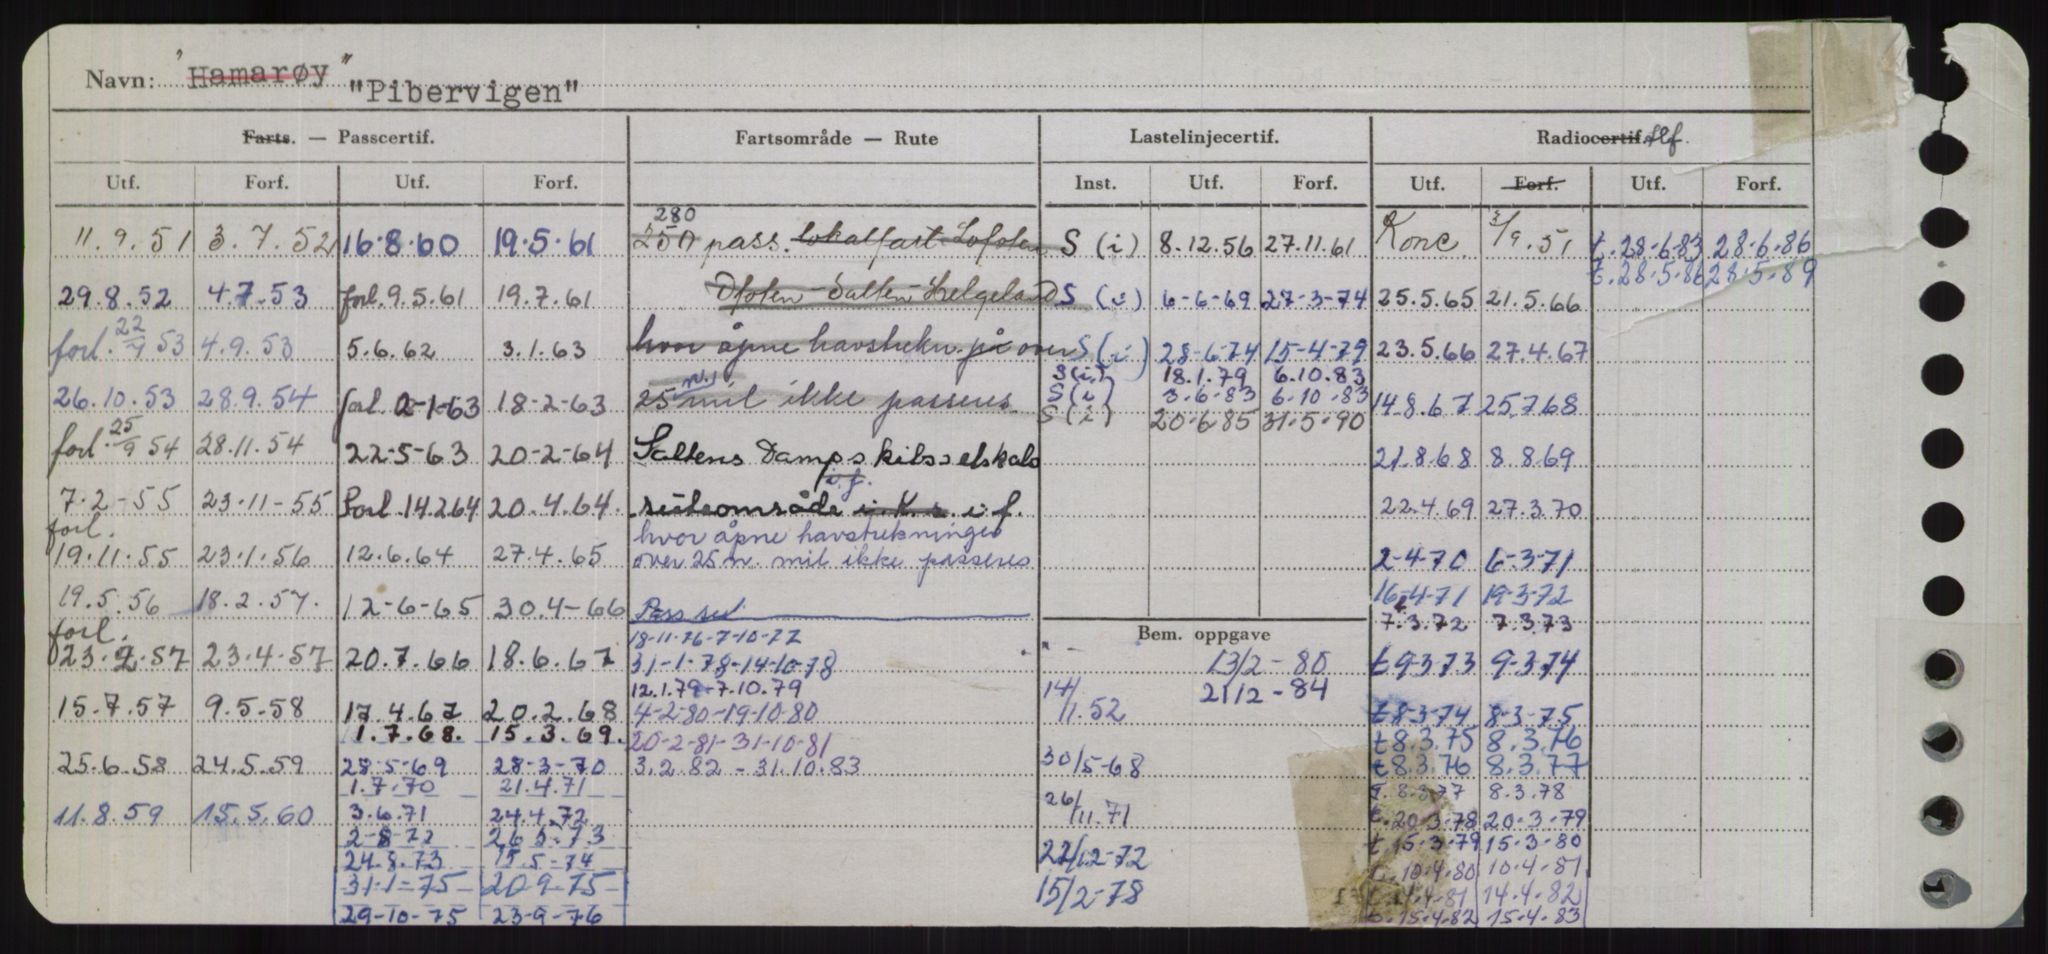 Navn: "Hamarøy" "Pibervigen"
Farts. — Passcertif.
Fartsområde — Rute
Lastelinjecertif.
Radiocertif. Tlf.
Utf. Forf. Utf. Forf. Inst. Utf. Forf. Utf. Forf. Utf. Forf.
11.9.51 3.7.52 16.8.60 19.5.61
29.8.52 4.7.53 forl. 9.5.61 19.7.61
forl. 22/9 53 4.9.53 5.6.62 3.1.63
26.10.53 28.9.54 forl. 2-1-63 18-2-63
forl. 25/9 54 28.11.54 22-5-63 20-2-64
7.2-55 23.11-55 Forl 14.2.64 20.4.64.
forl.
19.11.55 23.1.56 12.6.64 27.4.65
19.5.56 18.2.57. 12-6-65 30.4-66
forl.
23.2.57 23.4.57 20.7.66 18.6.67
15.7.57 9.5.58 17.4.67 20.2.68
1.7.68. 15.3.69.
25.6.58 24.5.59 28-5-69 28-3-70
1.7.70 21.4.71
11.8.59 15.5.60 3.6.71 24.4.72
2-8-72 26.5-73
24.8.73 15.5-74
31-1-75 20.9-75
29-10-75 23-9-76
280
250 pass. lokalfart Lofoten
Ofoten-Salten-Helgeland
hvor åpne havstrekn. på over
25 mil ikke passeres
Saltens Dampskibsselskabs
i.f.
ruteområde i.K.s. i.f.
hvor åpne havstrekninger
over 25 n. mil ikke passeres
Pass sert
18-11-76-7-10-77
31-1-78-14-10-78
12.1.79-7.10.79
4-2-80-19-10-80
20-2-81-31-10-81
3.2.82-31.10.83
S (i) 8.12.56 27.11.61
S (i) 6-6-69 27-3-74
S (i) 28-6-74 15-4-79
S (i) 18.1.79 6.10.83
S (i) 3.6.83 6.10.83
S (i) 20.6.85 31.5.90
Bem. oppgave
13/2-80
14/11.52 21/2-84
30/5-68
26/11.71
22/12-72
15/2-78
Konc. 3/9.51 t.28-6-83 28-6-86
t.28-5-86 28-5-89
25.5.65 21.5.66
23.5.66 27.4.67
14.8.67 25.7.68
21.8.68 8.8.69
22.4.69 27.3.70
2-4-70 6-3-71
16-4-71 19-3-72
7.3.72 7.3.73
t 9-3-73 9-3-74
t 8-3-74 8-3-75
t 8.3.75 8.3.76
t 8.3.76 8.3.77
t. 8.3.77 8.3.78
t. 20.3.78 20.3.79
t. 15-3-79 15-3-80
t. 10.4.80 10.4.81
t. 14.4.81 14.4.82
t. 15.4.82 15.4.83